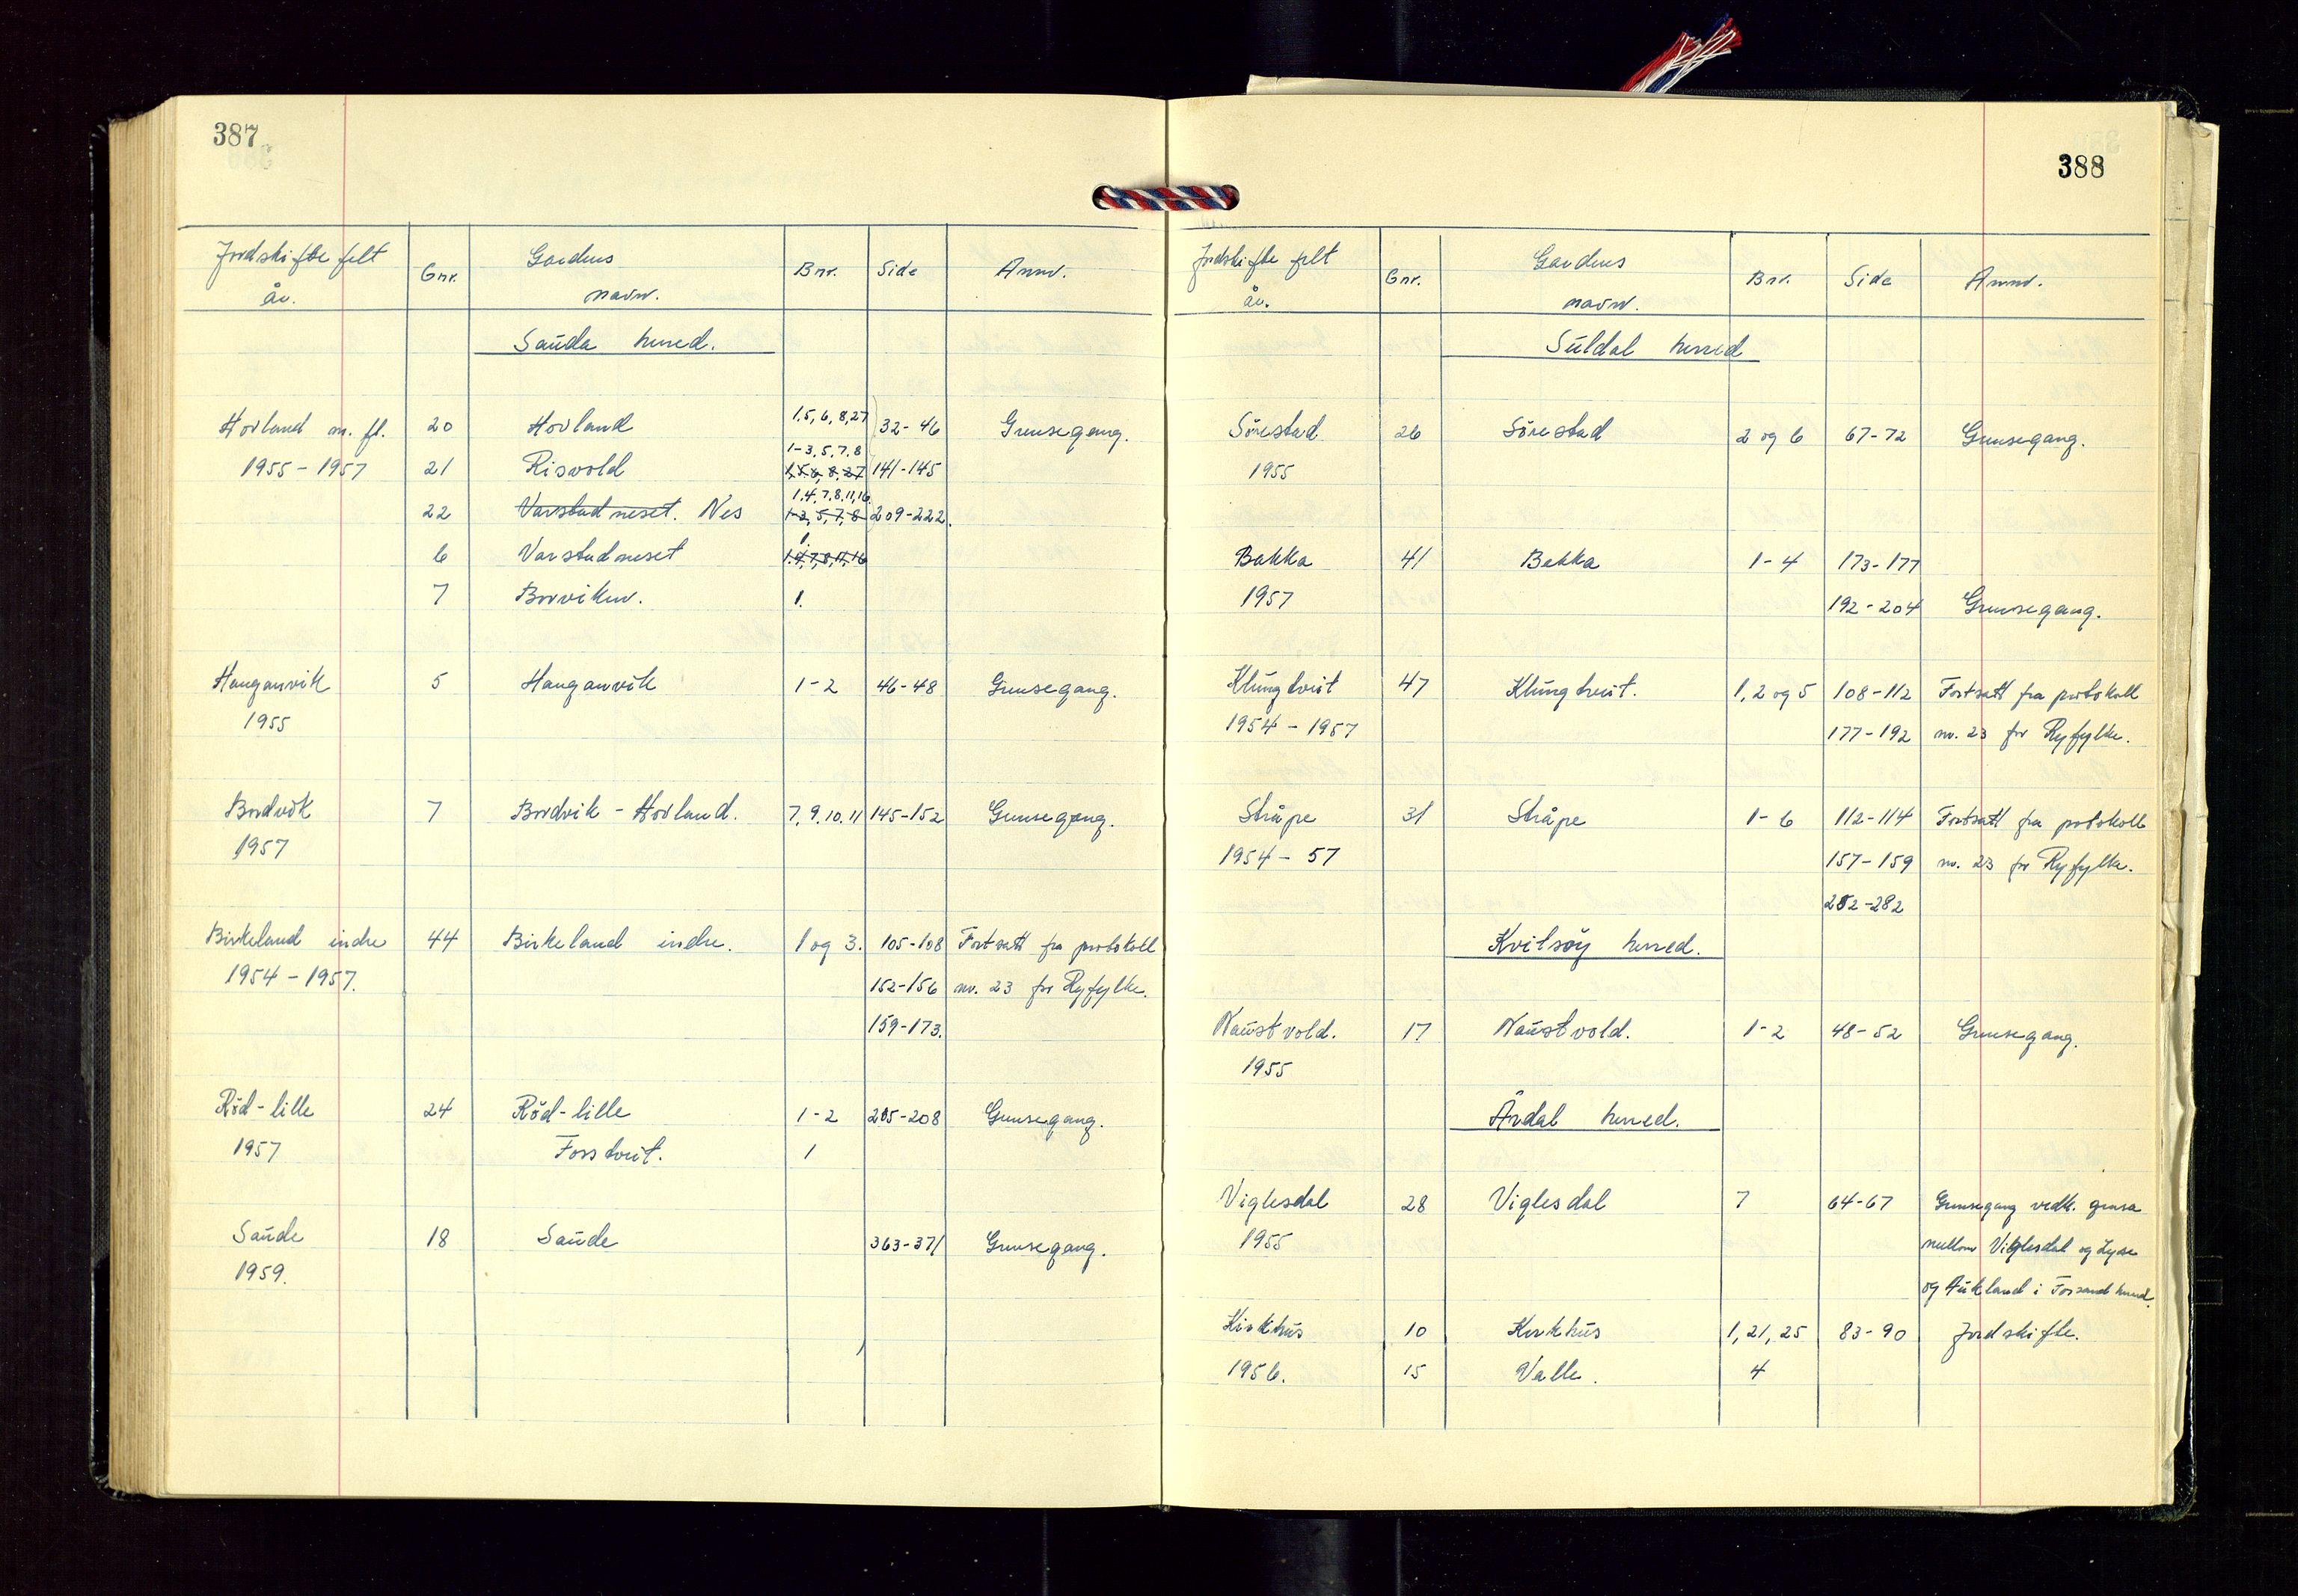 387
Jordskifte felt Gnr. Gardens Bnr. Side Anm.
år. navn.
Sauda herred.
Hovland m. fl. 20 Hovland 1,5,6,8,27 32-46 Grensegang.
1-3,5,7,8
1955-1957 21 Risvold 1,5,6,8,27 141-145
1,4,7,8,11,16
22 Varstadneset. Nes 1-3,5,7,8 209-222.
1.
6 Varstadneset 1,4,7,8,11,16
7 Borviken. 1.
Hanganvik 5 Hanganvik 1-2 46-48 Grensegang.
1955
Bordvik 7 Bordvik - Hovland. 7,9,10,11 145-152 Grensegang.
1957
Birkeland indre 44 Birkeland indre. 1 og 3. 105-108 Fortsatt fra protokoll
1954-1957. 152-156 nr. 23 for Ryfylke.
159-173.
Röd-lille 24 Röd-lille 1-2 205-208 Grensegang.
1957 Fosstveit. 1
Saude 18 Saude 363-371 Grensegang.
1959.
388
Jordskifte felt Gnr. Gardens Bnr. Side Anm.
år. navn.
Suldal herred
Sörestad 26 Sörestad 2 og 6 67-72 Grensegang.
1955
Bakka 41 Bakka 1-4 173-177
1957 192-204 Grensegang.
Klungtveit 47 Klungtveit. 1, 2 og 5 108-112 Fortsatt fra protokoll
1954-1957 177-192 nr. 23 for Ryfylke.
Stråpe 31 Stråpe 1-6 112-114 Fortsatt fra protokoll
1954-57 157-159 nr. 23 for Ryfylke.
252-282
Kvitsöy herred.
Naustvold. 17 Naustvold. 1-2 48-52 Grensegang.
1955
Årdal herred.
Viglesdal 28 Viglesdal 7 64-67 Grensegang vedk. grensa
1955 mellom Viglesdal og Lyse
og Aukland i Forsand herred.
Kirkhus 10 Kirkhus 1, 21, 25 83-90 Jordskifte.
1956. 15 Valle. 4